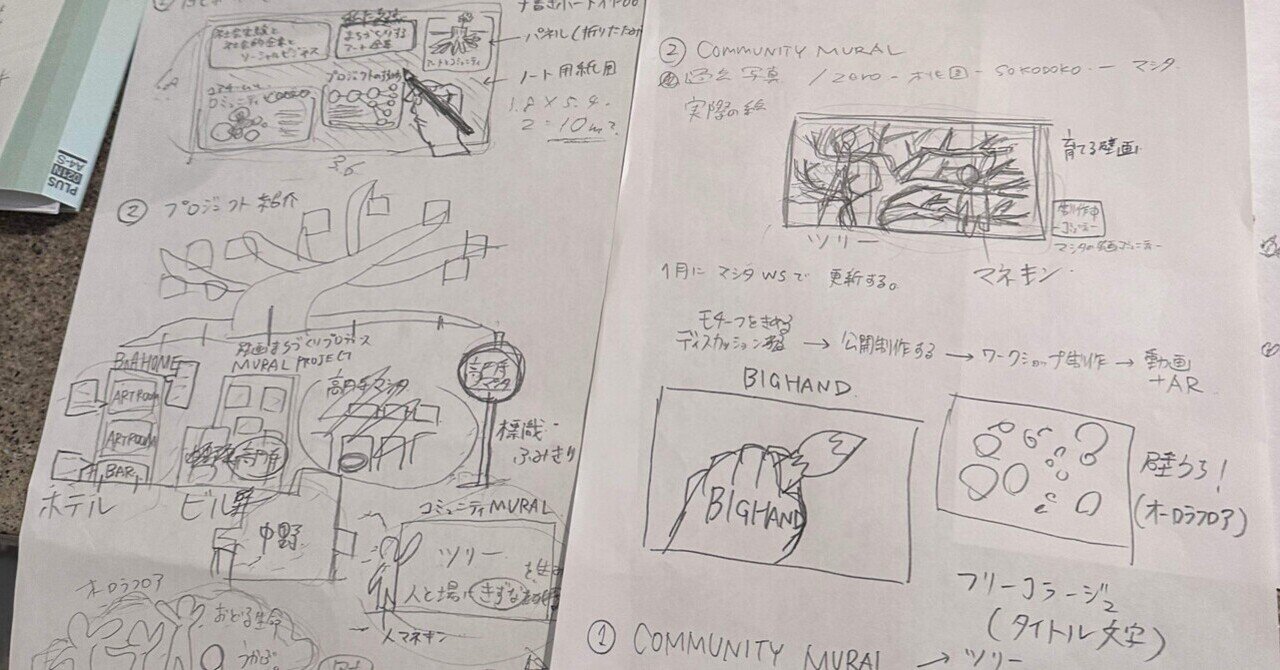 PLUS
021N
A4-S
社会実験と
社会的企業と
ソーシャルビジネス
まちづくりする
アート企業
アートとコミュニティ
パネル(折りたたみ
ノート用紙風
プロジェクトの
コミュニティ
1.8 × 5.4
2 = 10m²
② プロジェクト紹介
壁画まちづくりプロジェクス
B&A HOME
MURAL PROJECT
ART ROOM
ART ROOM
BAR
高円寺マシタ
高円寺
マシタ
標識・
ふみきり
ホテル
ビル群
中野
コミュニティMURAL
ツリー
人と場に きずな
人マネキン
オーロラフロア
おどる生命
うかぶ
② COMMUNITY MURAL
写真 / Zero - - SOKODOKO - マシタ
実際の絵
育てる壁画
制作中
ツリー
マネキン
1月に マシタWSで 更新する。
モチーフをきめる
ディスカッションする → 公開制作する → ワークショップ制作 → 動画
+AR
BIGHAND
BIGHAND
壁うら!
(オーロラフロア)
フリーコラージュ
(タイトル文字)
① COMMUNITY MURAL → ツリー